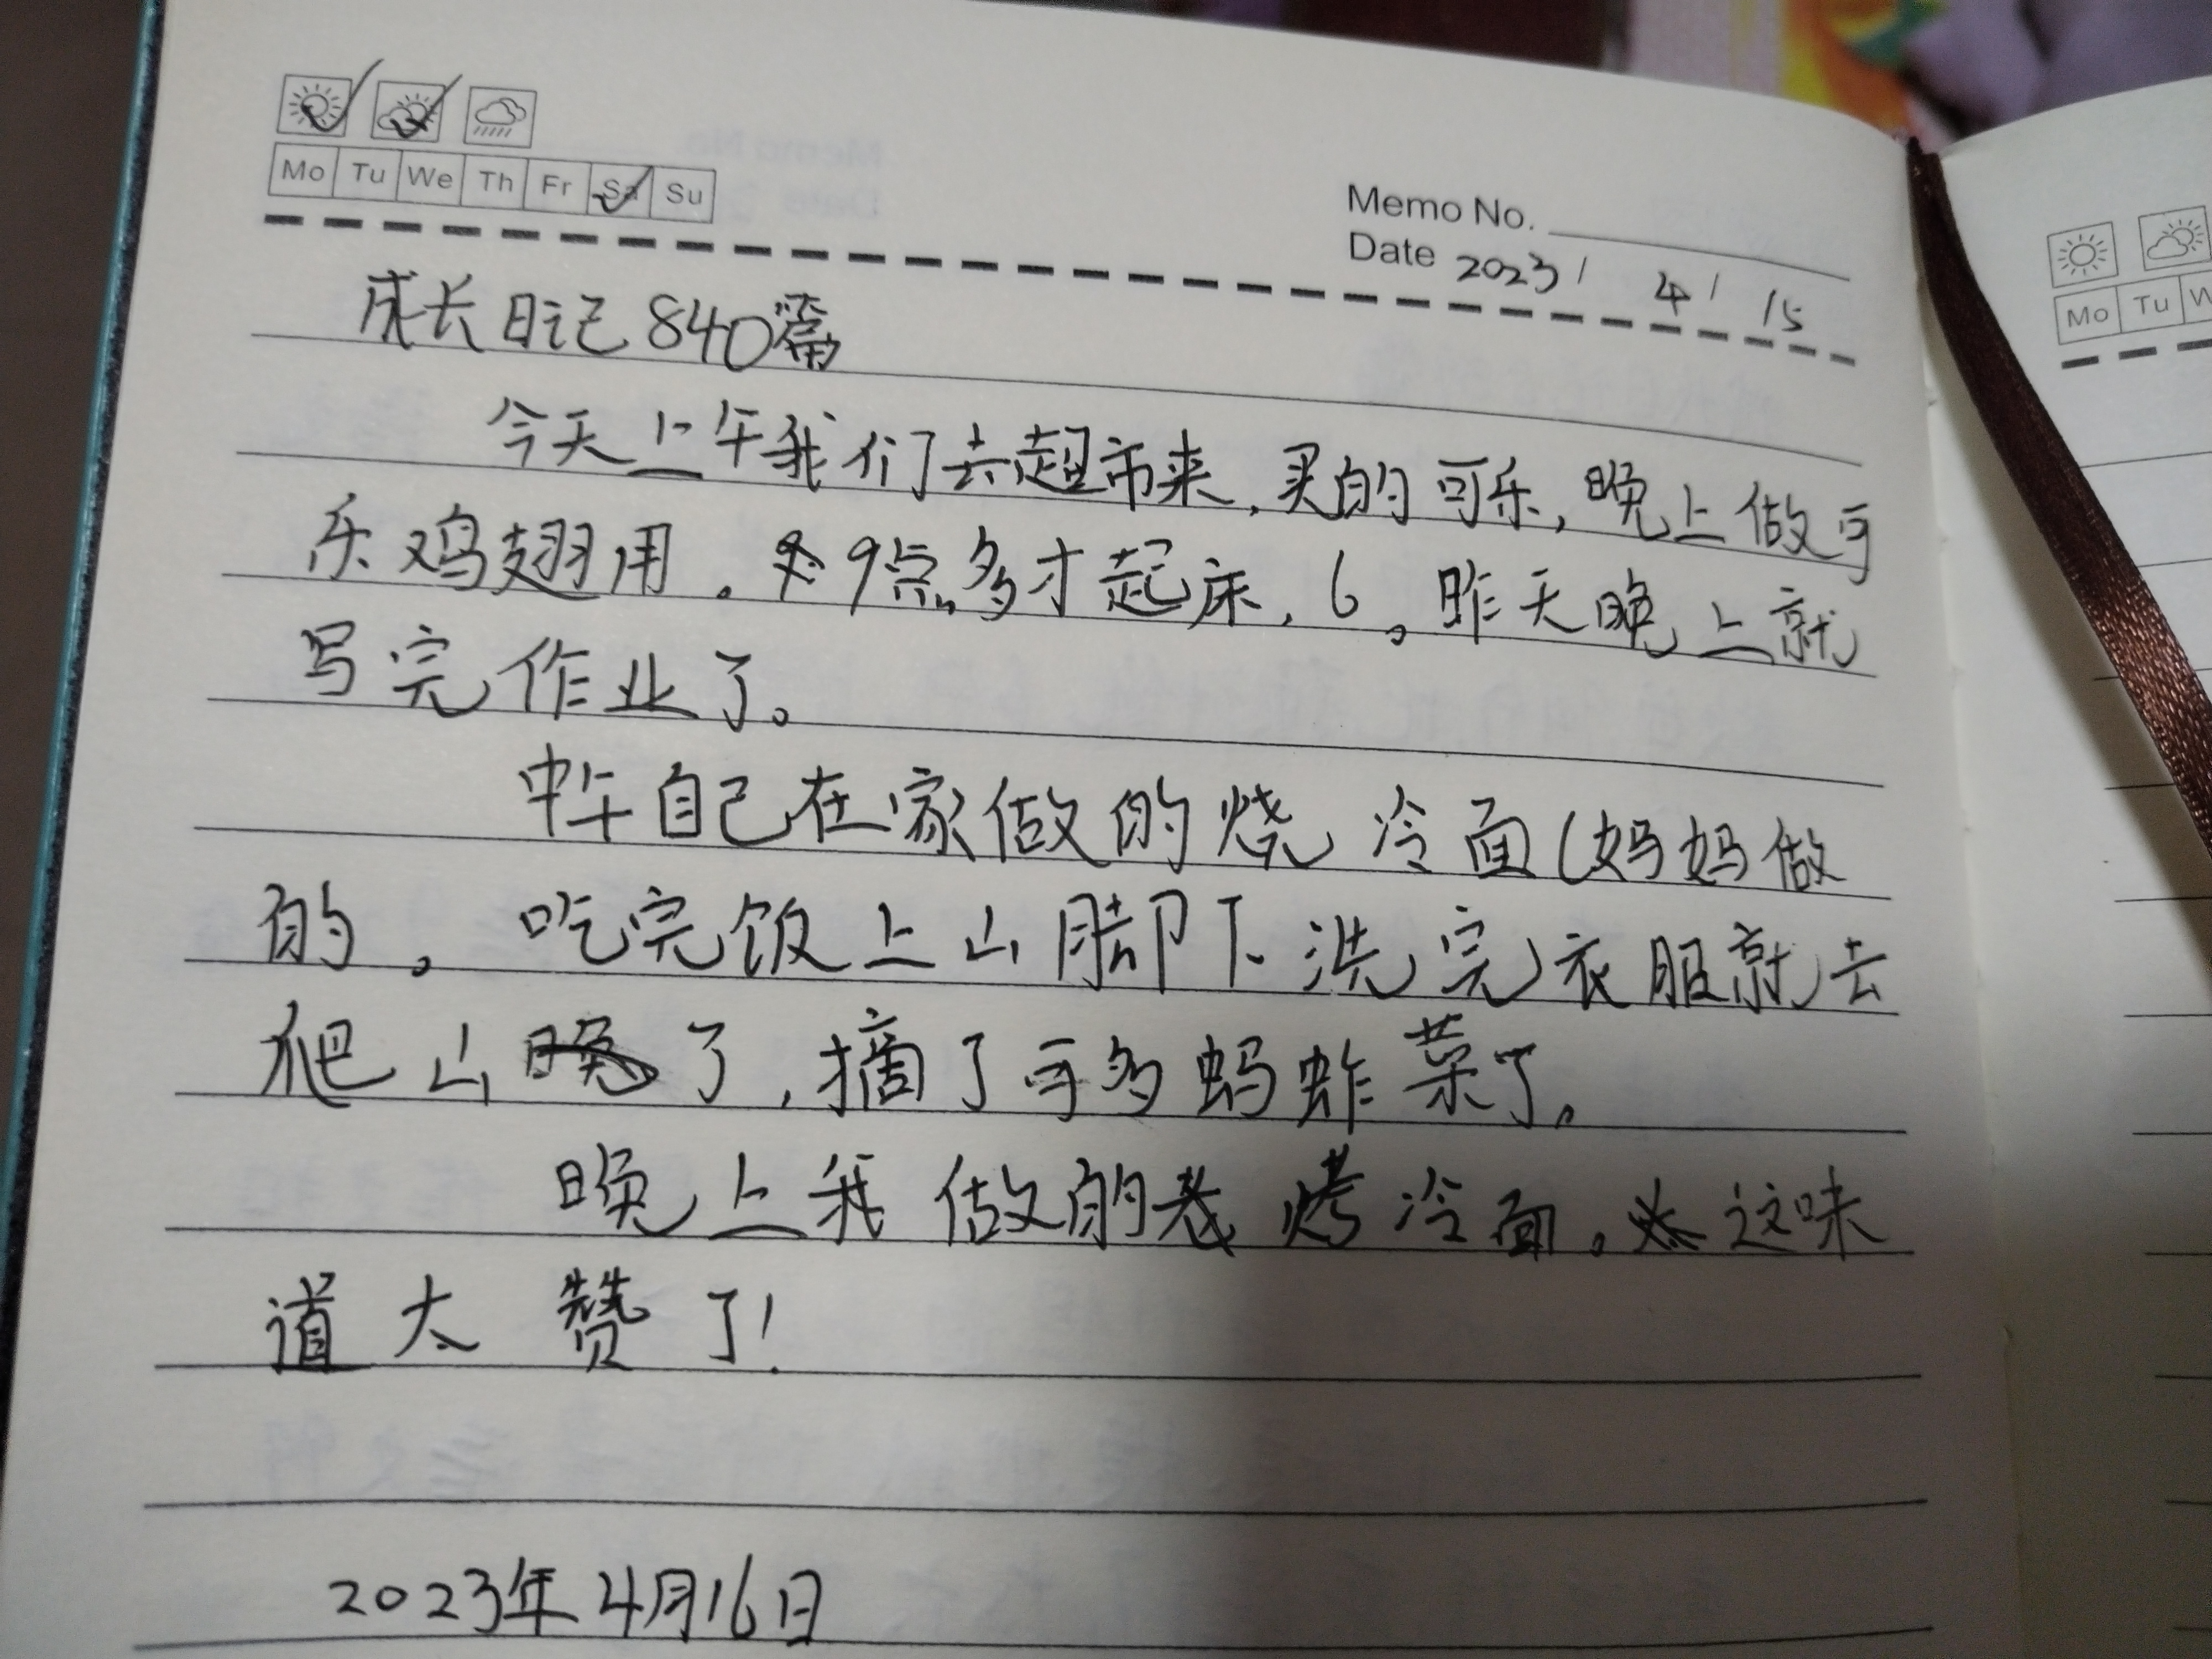 Mo Tu We Th Fr Sa Su
Memo No.
Date 2023/ 4/ 15
成长日记840篇
今天上午我们去超市来,买的可乐,晚上做可
乐鸡翅用。9点多才起床,6。昨天晚上就
写完作业了。
中午自己在家做的烧冷面(妈妈做
的。吃完饭上山脚下洗完衣服就去
爬山了,摘了可多蚂蚱菜了。
晚上我做的烤冷面。这味
道太赞了!
2023年4月16日
Mo Tu